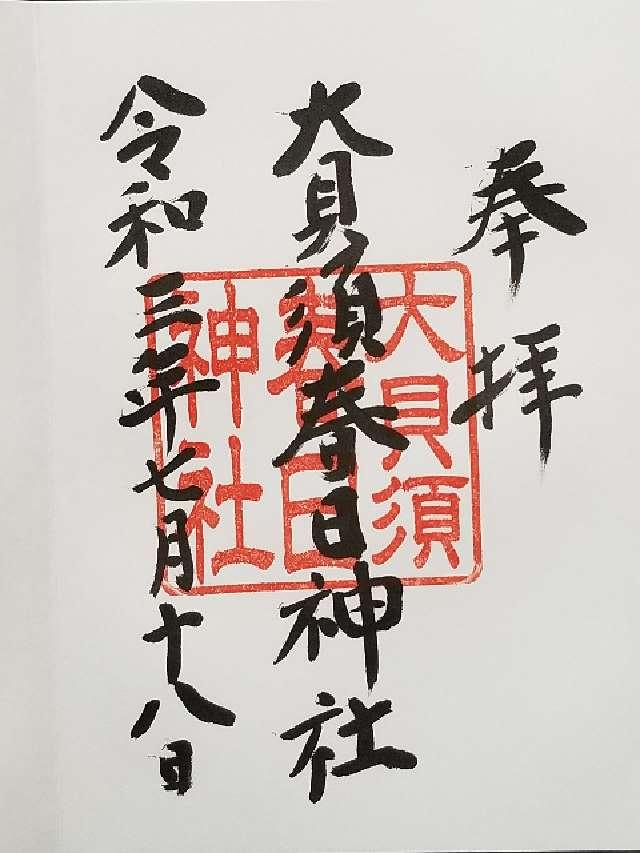 奉拝
大貝須春日神社
令和三年七月十八日
大貝須
春日
神社